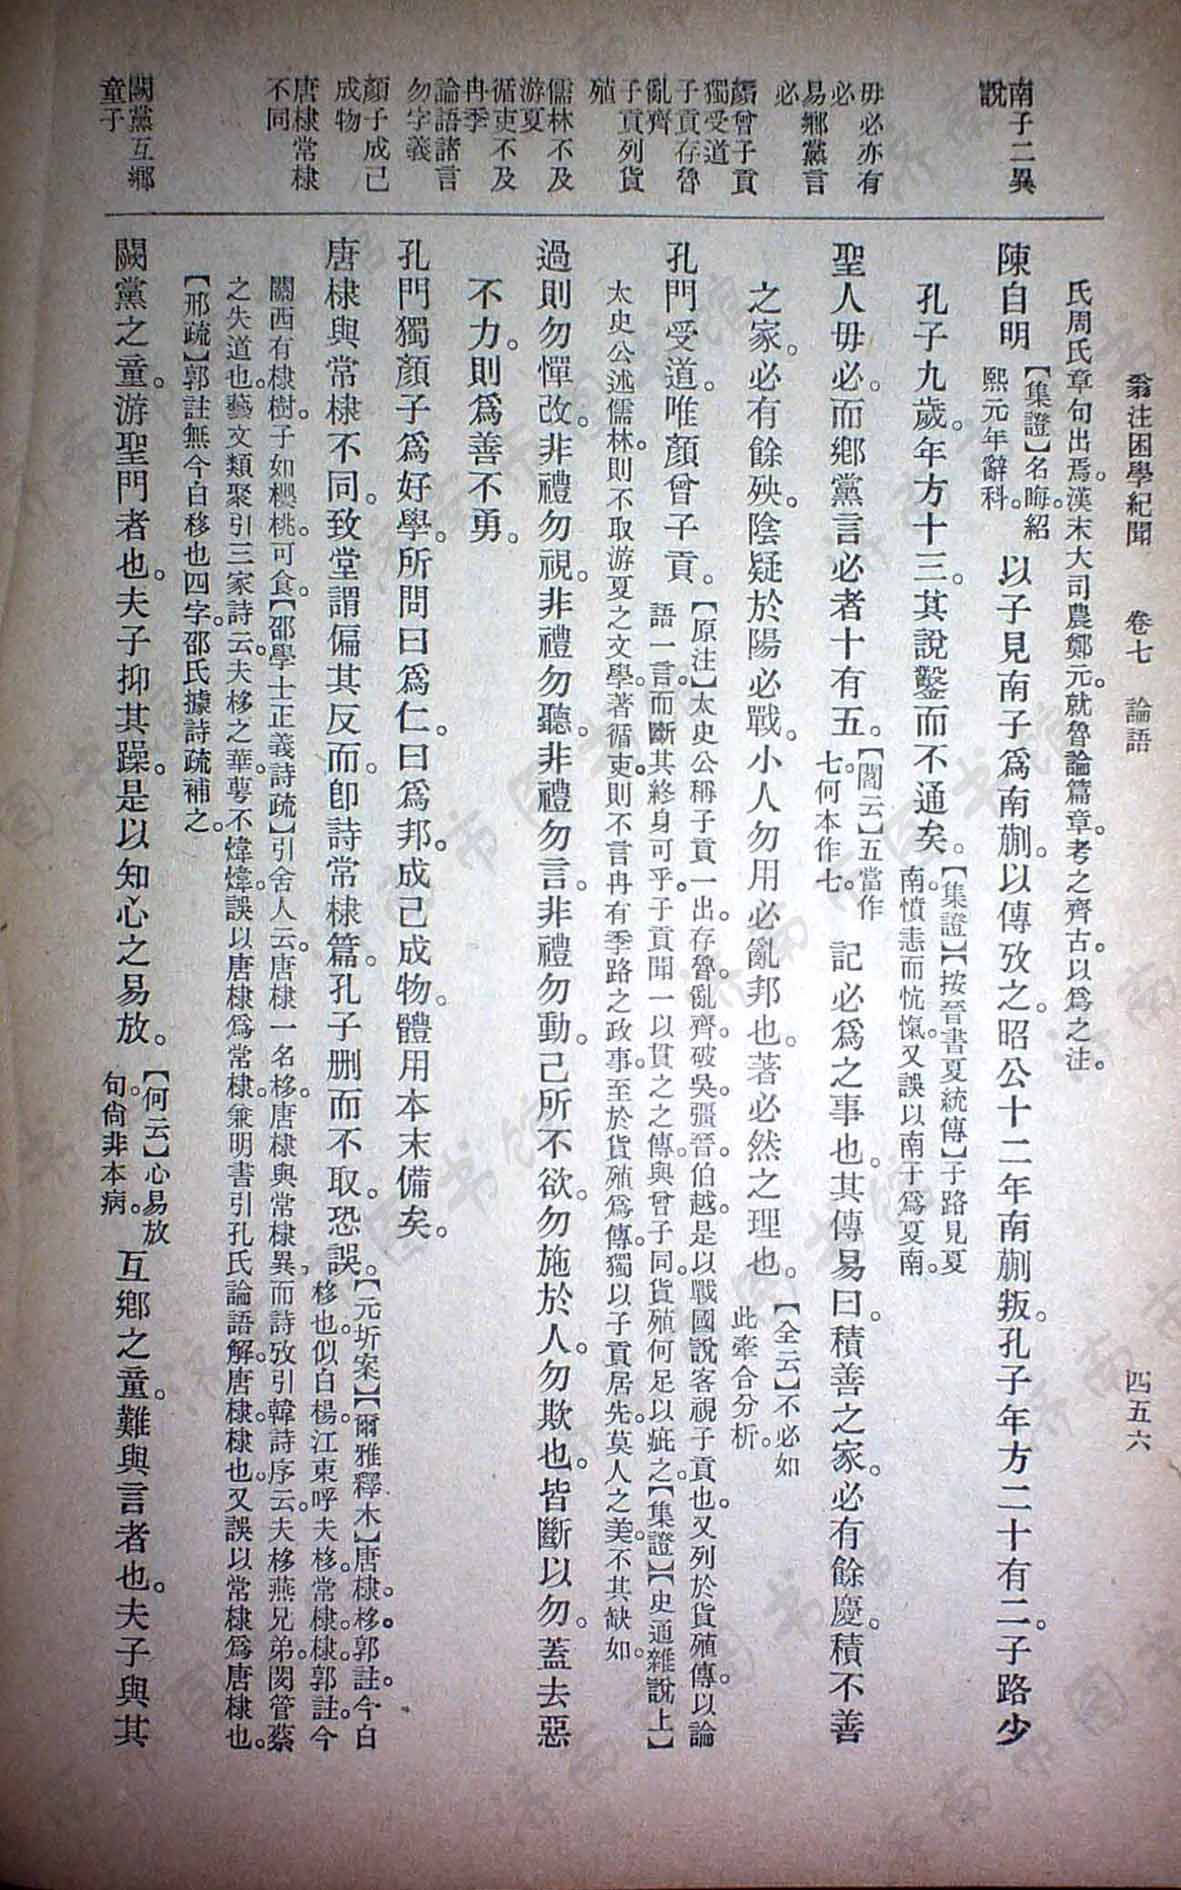 翁注困學紀聞　卷七　論語　四五六
南子二異
說
毋必亦有
必
易鄉黨言
必
顏曾子貢
獨受道
子貢存魯
亂齊
子貢列貨
殖
儒林不及
游夏
循吏不及
冉季
論語諸言
勿字義
顏子成己
成物
唐棣常棣
不同
闕黨互鄉
童子
氏周氏章句出焉。漢末大司農鄭元。就魯論篇章。考之齊古。以爲之注。
陳自明【集證】名晦。紹熙元年辭科。以子見南子爲南蒯。以傳攷之。昭公十二年南蒯叛。孔子年方二十有二。子路少
孔子九歲。年方十三。其說鑿而不通矣。【集證】【按晉書夏統傳】子路見夏南。憤恚而忼愾。又誤以南子爲夏南。
聖人毋必。而鄉黨言必者十有五。【閻云】五當作七。何本作七。記必爲之事也。其傳易曰。積善之家。必有餘慶。積不善
之家。必有餘殃。陰疑於陽必戰。小人勿用必亂邦也。著必然之理也。【全云】不必如此牽合分析。
孔門受道。唯顏曾子貢。【原注】太史公稱子貢一出。存魯。亂齊。破吳。彊晉。伯越。是以戰國說客視子貢也。又列於貨殖傳。以論
語一言。而斷其終身可乎。子貢聞一以貫之之傳。與曾子同。貨殖何足以疵之。【集證】【史通雜說上】
太史公述儒林。則不取游夏之文學。著循吏。則不言冉有季路之政事。至於貨殖爲傳。獨以子貢居先。莫人之美。不其缺如。
過則勿憚改。非禮勿視。非禮勿聽。非禮勿言。非禮勿動。己所不欲。勿施於人。勿欺也。皆斷以勿。蓋去惡
不力。則爲善不勇。
孔門獨顏子爲好學。所問曰爲仁。曰爲邦。成己成物。體用本末備矣。
唐棣與常棣不同。致堂謂偏其反而。卽詩常棣篇。孔子刪而不取。恐誤。【元圻案】【爾雅釋木】唐棣。栘。郭註。今白
栘也。似白楊。江東呼夫栘。常棣。棣。郭註。今
關西有棣樹。子如櫻桃。可食。【邵學士正義詩疏】引舍人云。唐棣一名栘。唐棣與常棣異。而詩攷引韓詩序云。夫栘燕兄弟。閔管蔡
之失道也。藝文類聚引三家詩云。夫栘之華。萼不煒煒。誤以唐棣爲常棣。兼明書引孔氏論語解。唐棣。棣也。又誤以常棣爲唐棣也。
【邢疏】郭註無今白栘也四字。邵氏據詩疏補之。
闕黨之童。游聖門者也。夫子抑其躁。是以知心之易放。【何云】心易放句。尙非本病。互鄉之童。難與言者也。夫子與其